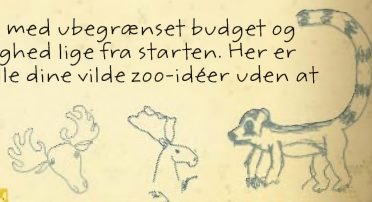 med ubegrænset budget og
ghed lige fra starten. Her er
le dine vilde zoo-idéer uden at